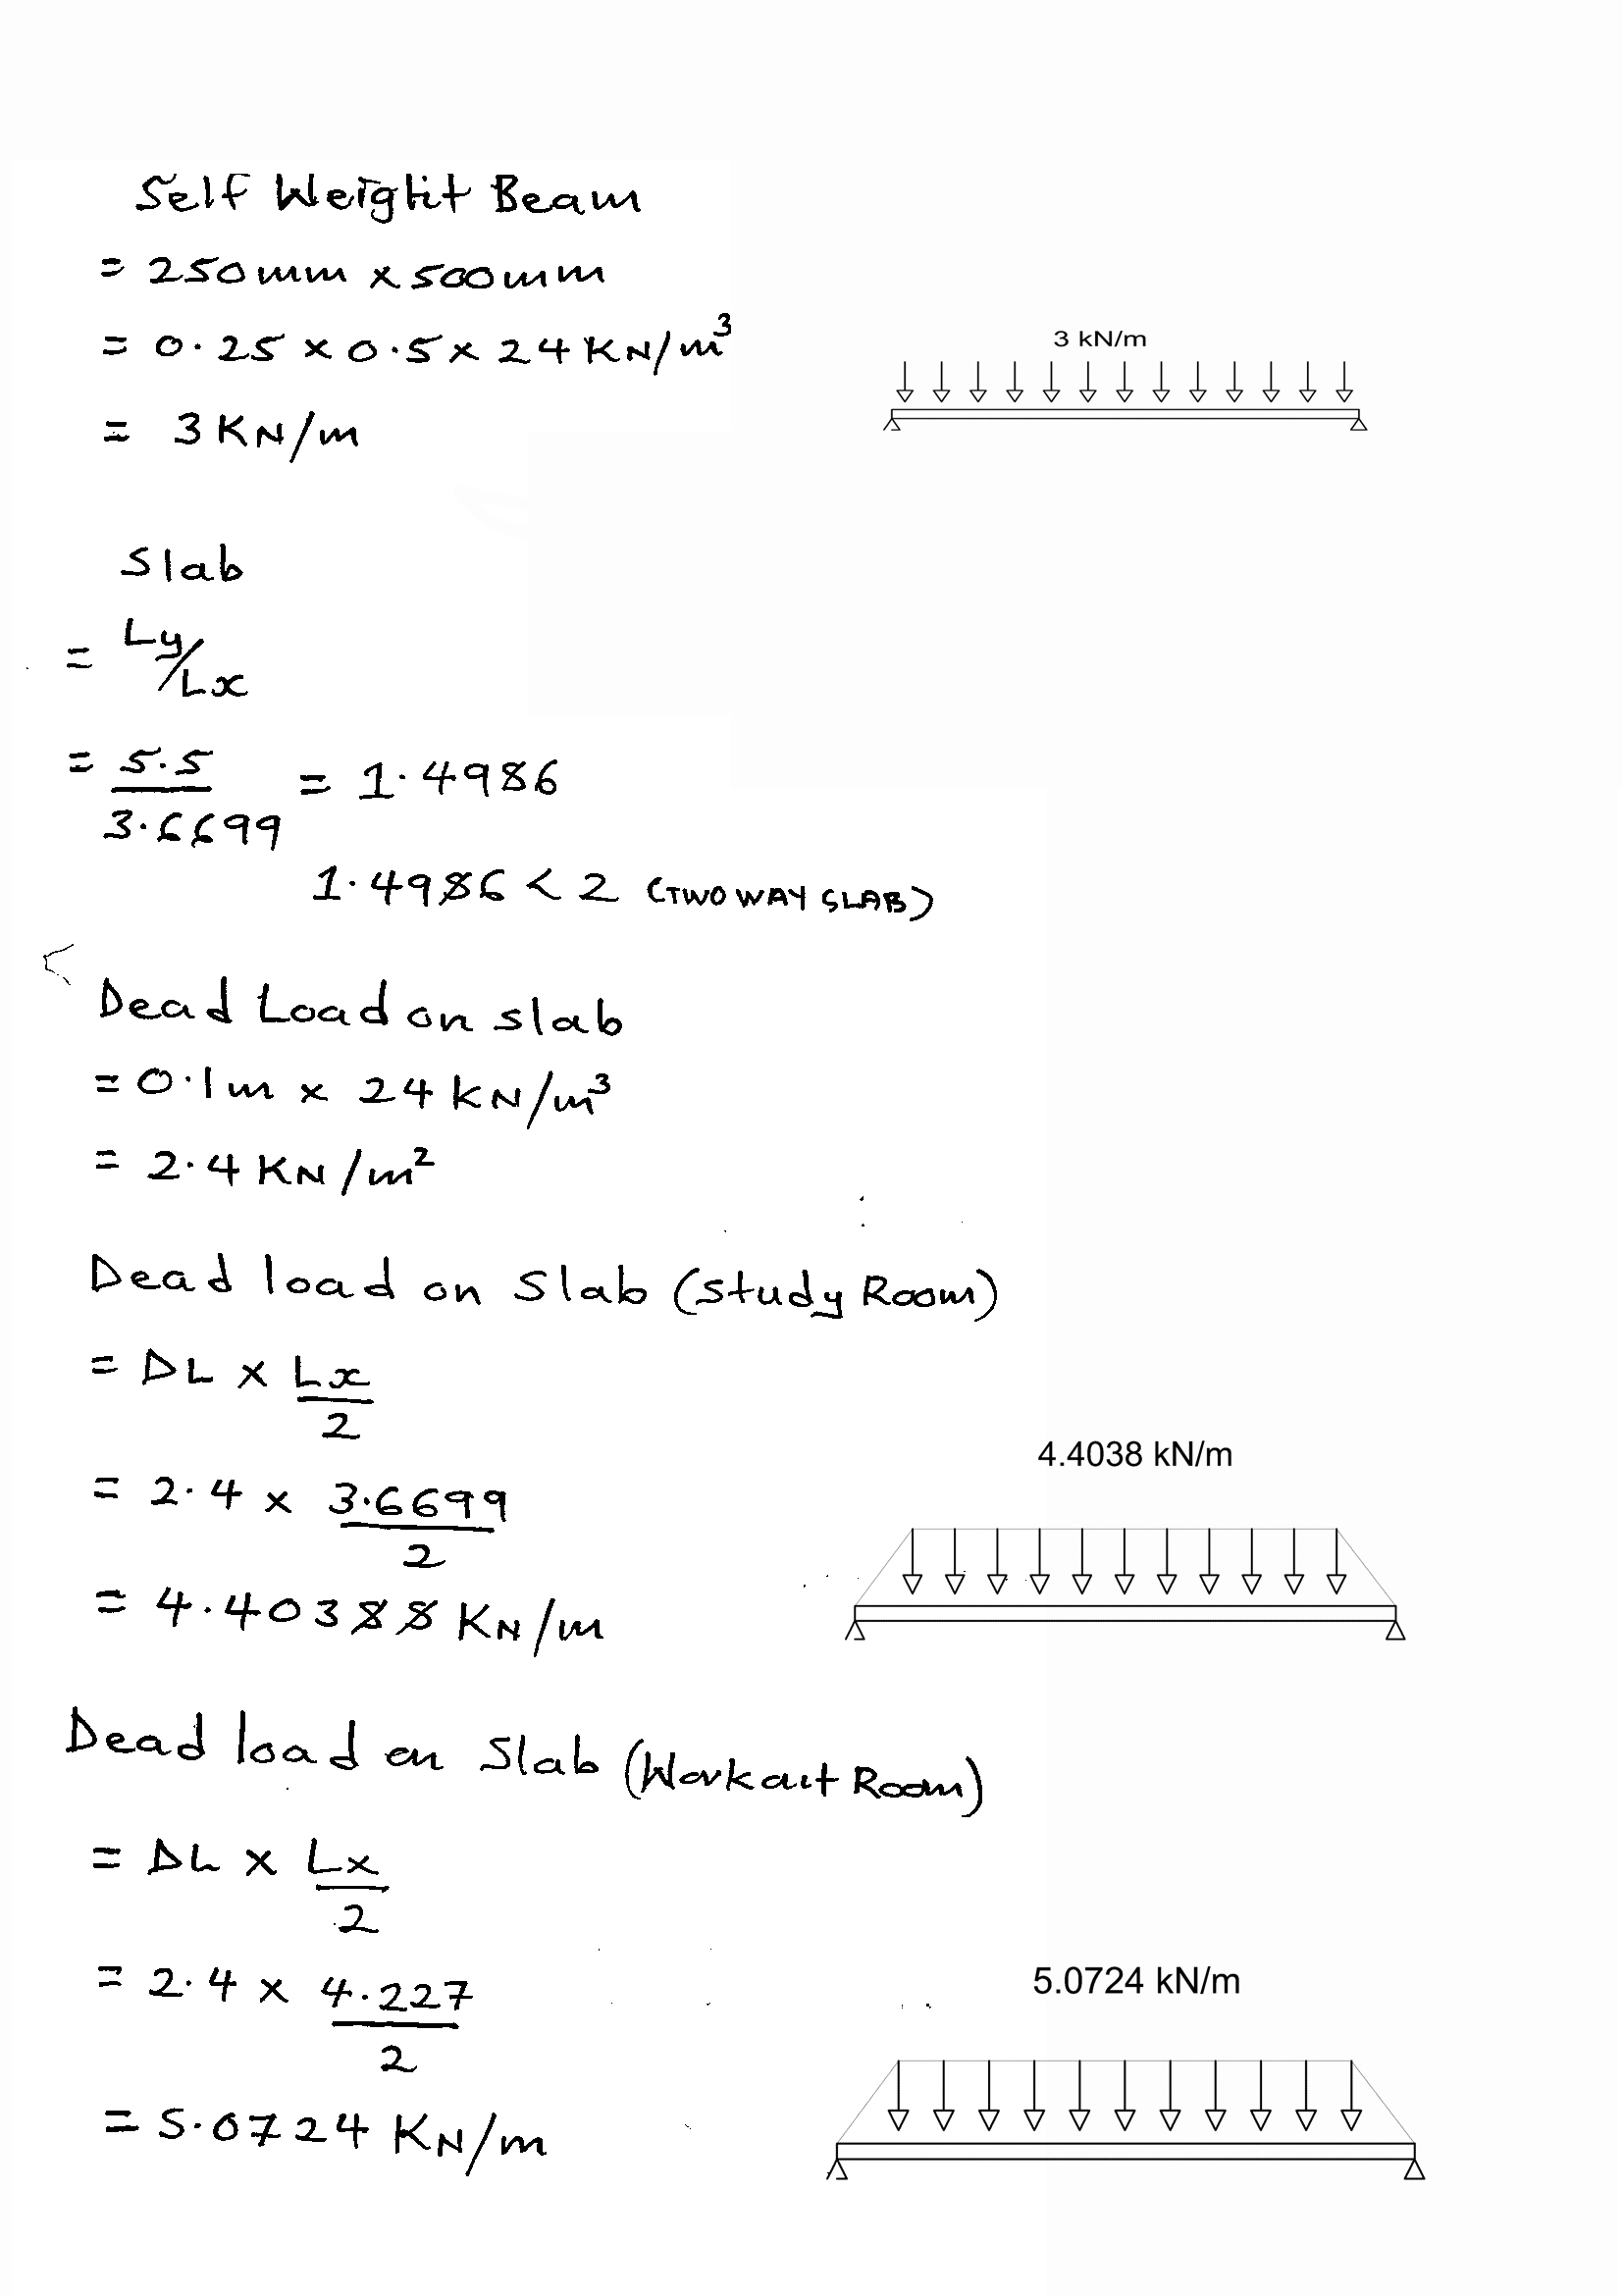 Self Weight Beam
= 250mm x 500mm
= 0.25 x 0.5 x 24 KN/m³
3 kN/m
= 3 KN/m
Slab
= Ly/Lx
= 5.5/3.6699 = 1.4986
1.4986 < 2 (TWO WAY SLAB)
Dead Load on slab
= 0.1m x 24 KN/m³
= 2.4 KN/m²
Dead load on Slab (study Room)
= DL x Lx/2
4.4038 kN/m
= 2.4 x 3.6699/2
= 4.40388 KN/m
Dead load on Slab (Workout Room)
= DL x Lx/2
= 2.4 x 4.227/2
5.0724 kN/m
= 5.0724 KN/m